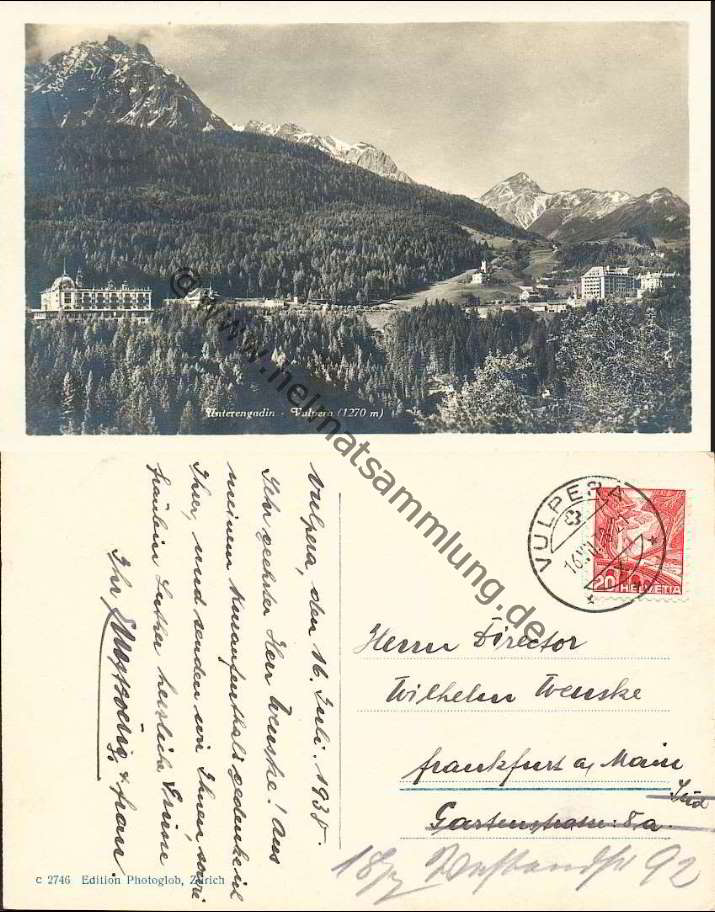 Unterengadin - Vulpera (1270 m)
© www.heimatsammlung.de
VULPERA
16.VII.
20 HELVETIA
Vulpera, den 16. Juli. 193
Ihr geehrter Herr Wenske! Aus
meinem Kuraufenthalt gedenke ich
Ihrer, und senden wir Ihnen, sowie
Fräulein Luther herzliche Grüsse
Ihr & Frau.
Herrn Director
Wilhelm Wenske
Frankfurt a, Main
Süd
Gartenstrasse 8a.
18/7 92
c 2746 Edition Photoglob, Zürich